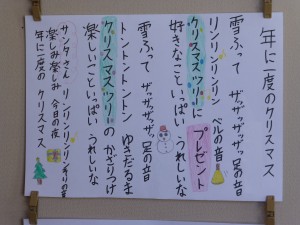 年に一度のクリスマス
雪ふって ザッザッザッザッ足の音
リンリンリンリン ベルの音
クリスマスツリーに プレゼント
好きなこといっぱい うれしいな
雪ふって ザッザッザッザッ足の音
トントントントン ゆきだるま
クリスマスツリーの かざりつけ
楽しいこといっぱい うれしいな
サンタさん リンリンリンリンそりの音
楽しみ楽しみ 今日の夜
年に一度の クリスマス